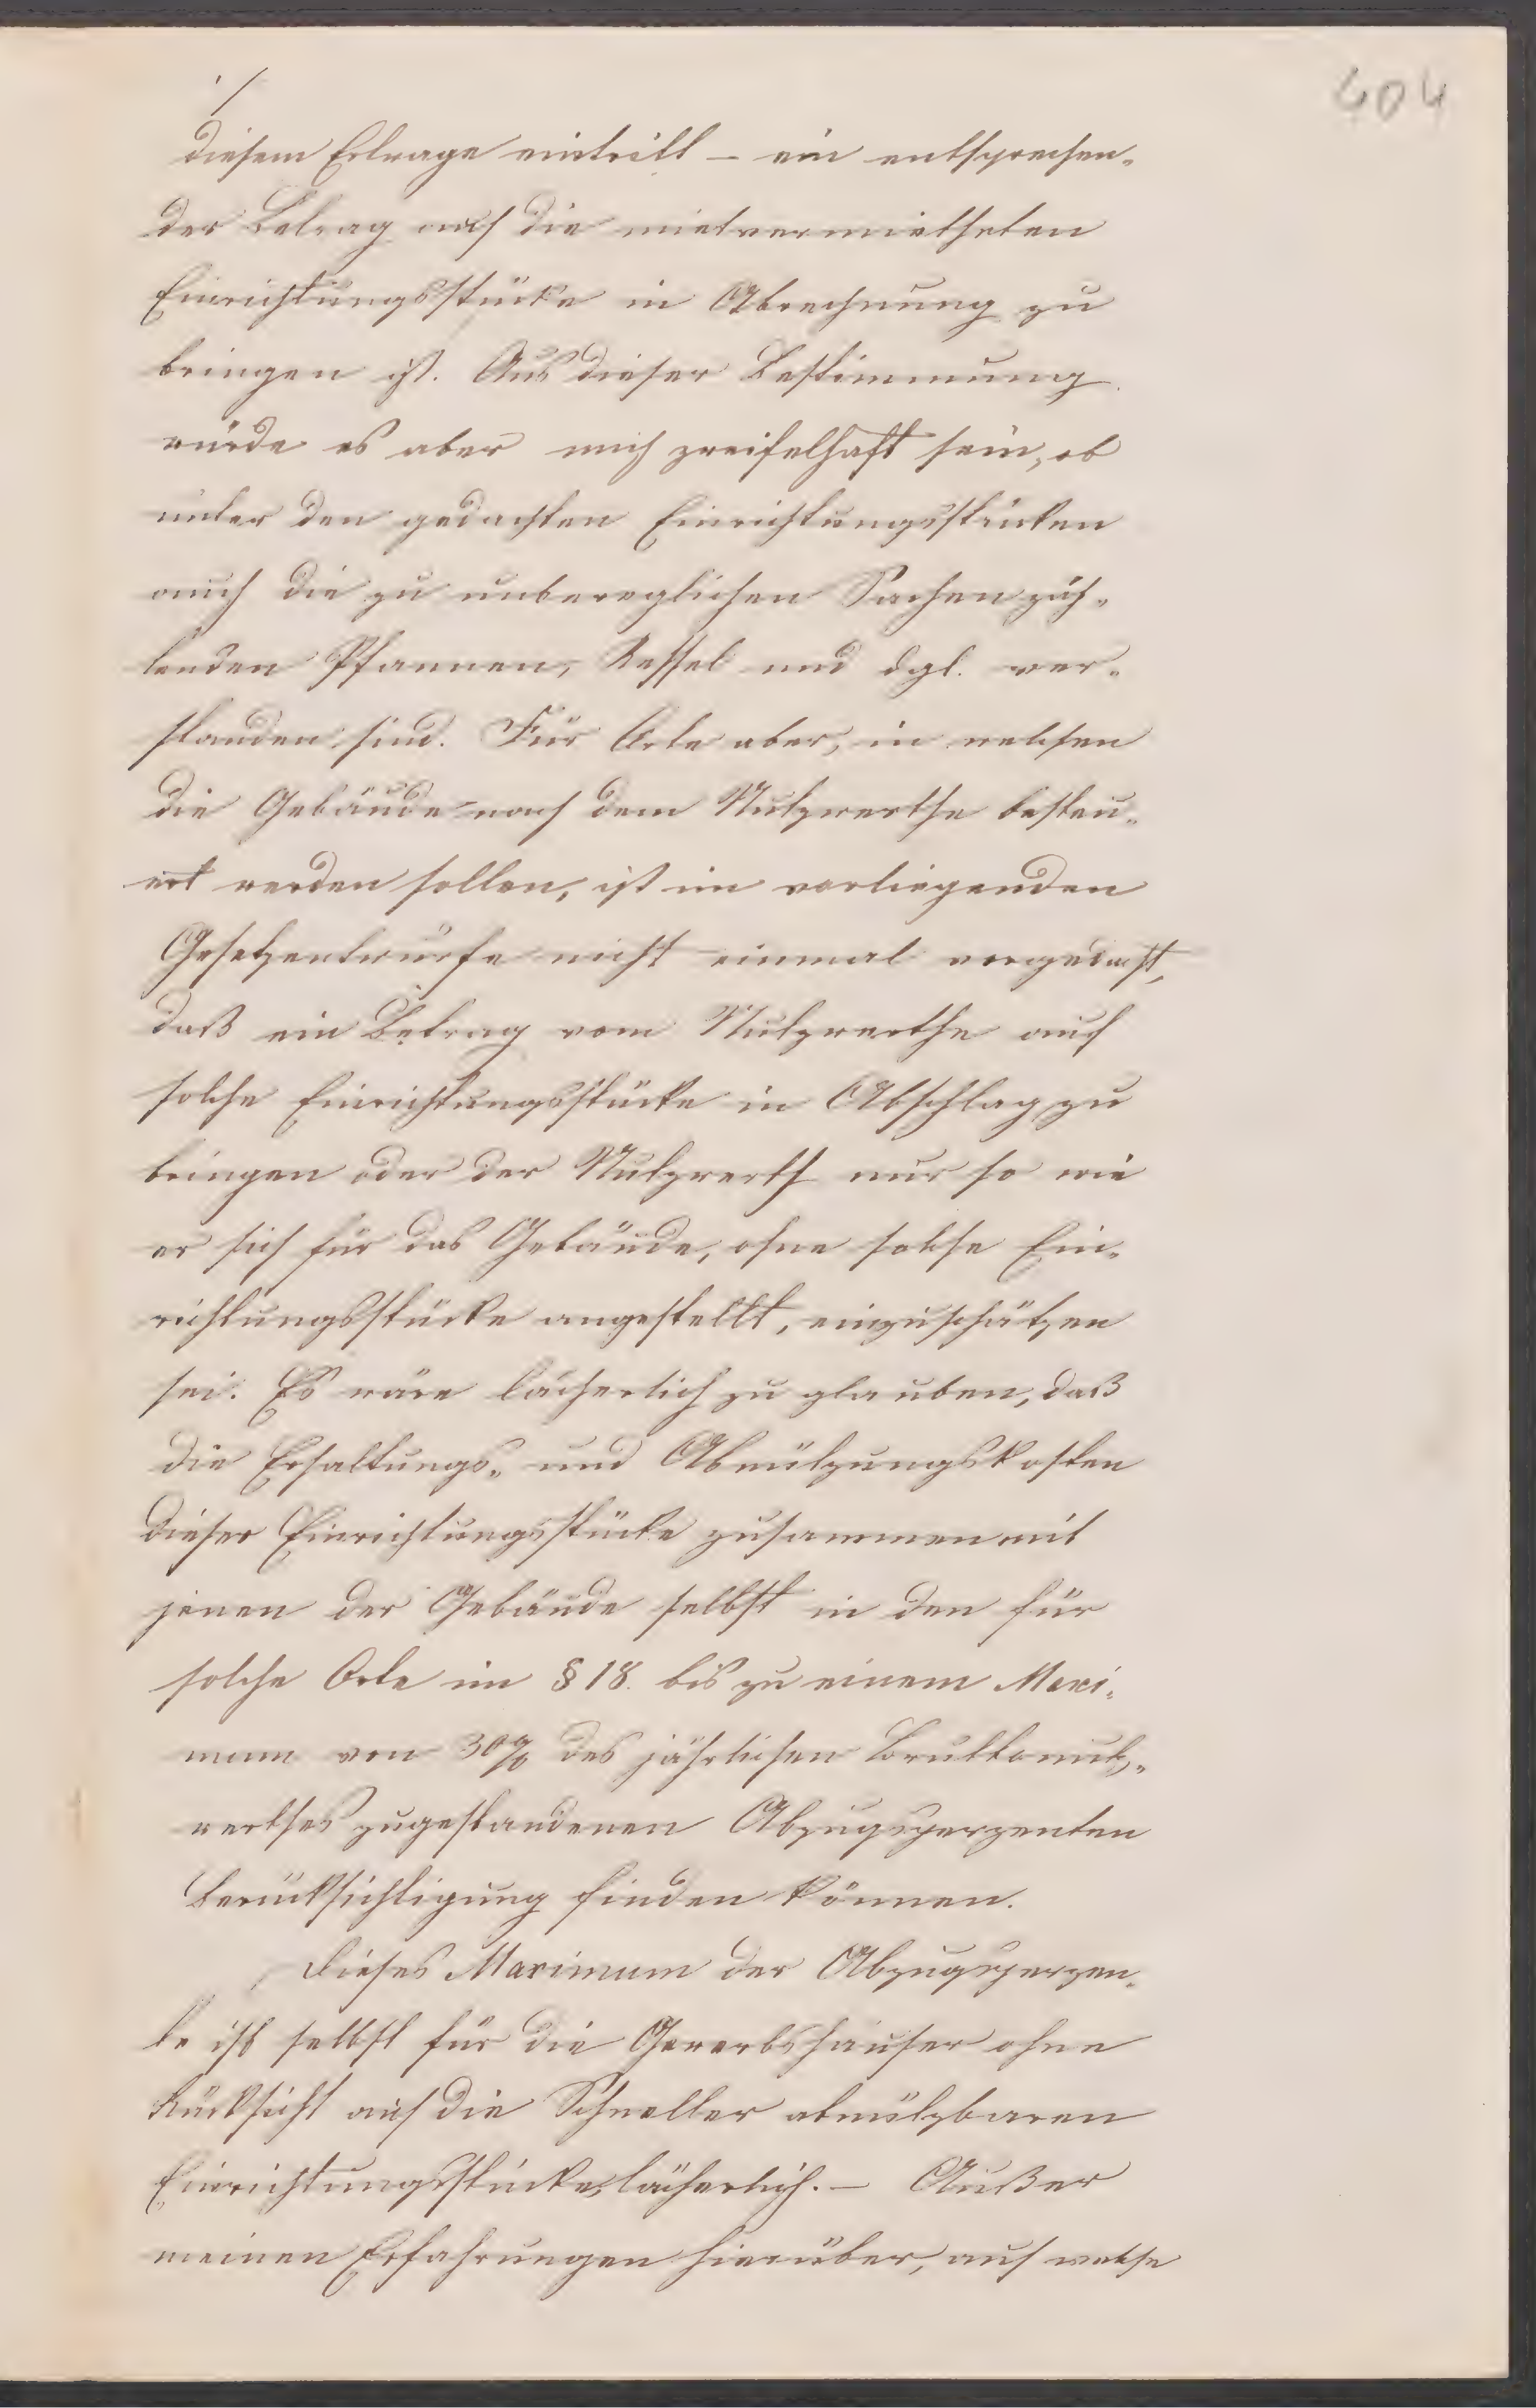 404
diesem Ertrage eintritt – ein entsprechen-
der Betrag auf die mietvermietheten
Einrichtungsstücke in Abrechnung zu
bringen ist. Aus dieser Bestimmung
würde es aber mich zweifelhaft sein, ob
unter den gedachten Einrichtungsstücken
auch die zu unbeweglichen Sachen zäh-
lenden Pfannen, Kessel und dgl. ver-
standen sind. Für Orte aber, in welchen
die Gebäude nach dem Nutzwerthe besteu-
ert werden sollen, ist im vorliegenden
Gesetzentwurfe nicht einmal vorgedacht,
daß ein Betrag vom Nutzwerthe auf
solche Einrichtungsstücke in Abschlag zu
bringen oder der Nutzwerth nur so wie
er sich für das Gebäude, ohne solche Ein-
richtungsstücke angestellt, einzuschätzen
sei. Es wäre lächerlich zu glauben, daß
die Erhaltungs- und Abnützungskosten
dieser Einrichtungsstücke zusammen mit
jenen der Gebäude selbst in den für
solche Orte im § 18. bis zu einem Maxi-
mum von 30% des jährlichen Bruttonutz-
werthes zugestandenen Abzugsperzenten
Berücksichtigung finden können.
Dieses Maximum der Abzugsperzen-
te ist selbst für die Gewerbshäuser ohne
Rücksicht auf die Schneller abnützbaren
Einrichtungsstücke lächerlich. – Außer
meinen Erfahrungen hierüber, auf welche